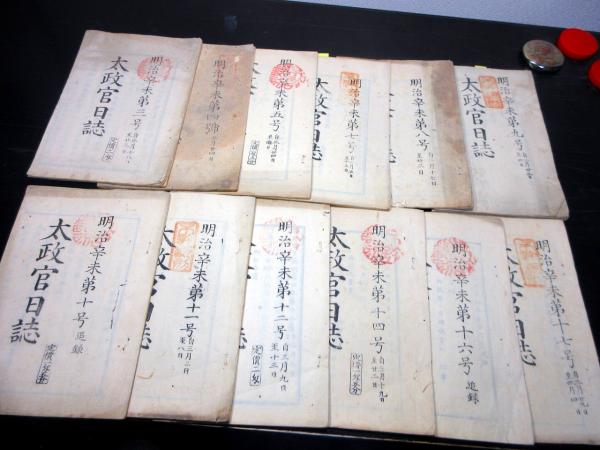 明治辛未第三号
太政官日誌
明治辛未第四號
明治辛未第五号
明治辛未第七号
太政官日誌
明治辛未第八号
明治辛未第九号
太政官日誌
明治辛未第十号 追録
太政官日誌
明治辛未第十一号 自三月二日至八日
太政官日誌
明治辛未第十二号 自三月九日至十三日
定價二匁
明治辛未第十四号 自三月十九日至廿二日
太政官日誌
明治辛未第十六号 追録
明治辛未第十七号
太政官日誌